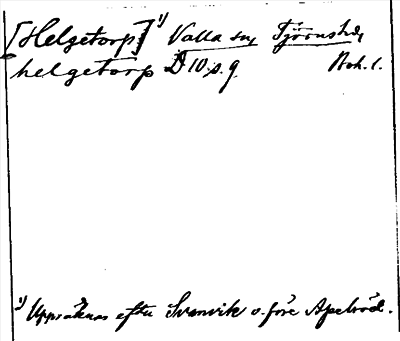 [Helgetorp] 1) Valla sn, Tjörns hd,
helgetorp D 10: s. 9. Boh. l.
1) Uppräknas efter Svanvik o. före Apelröd.